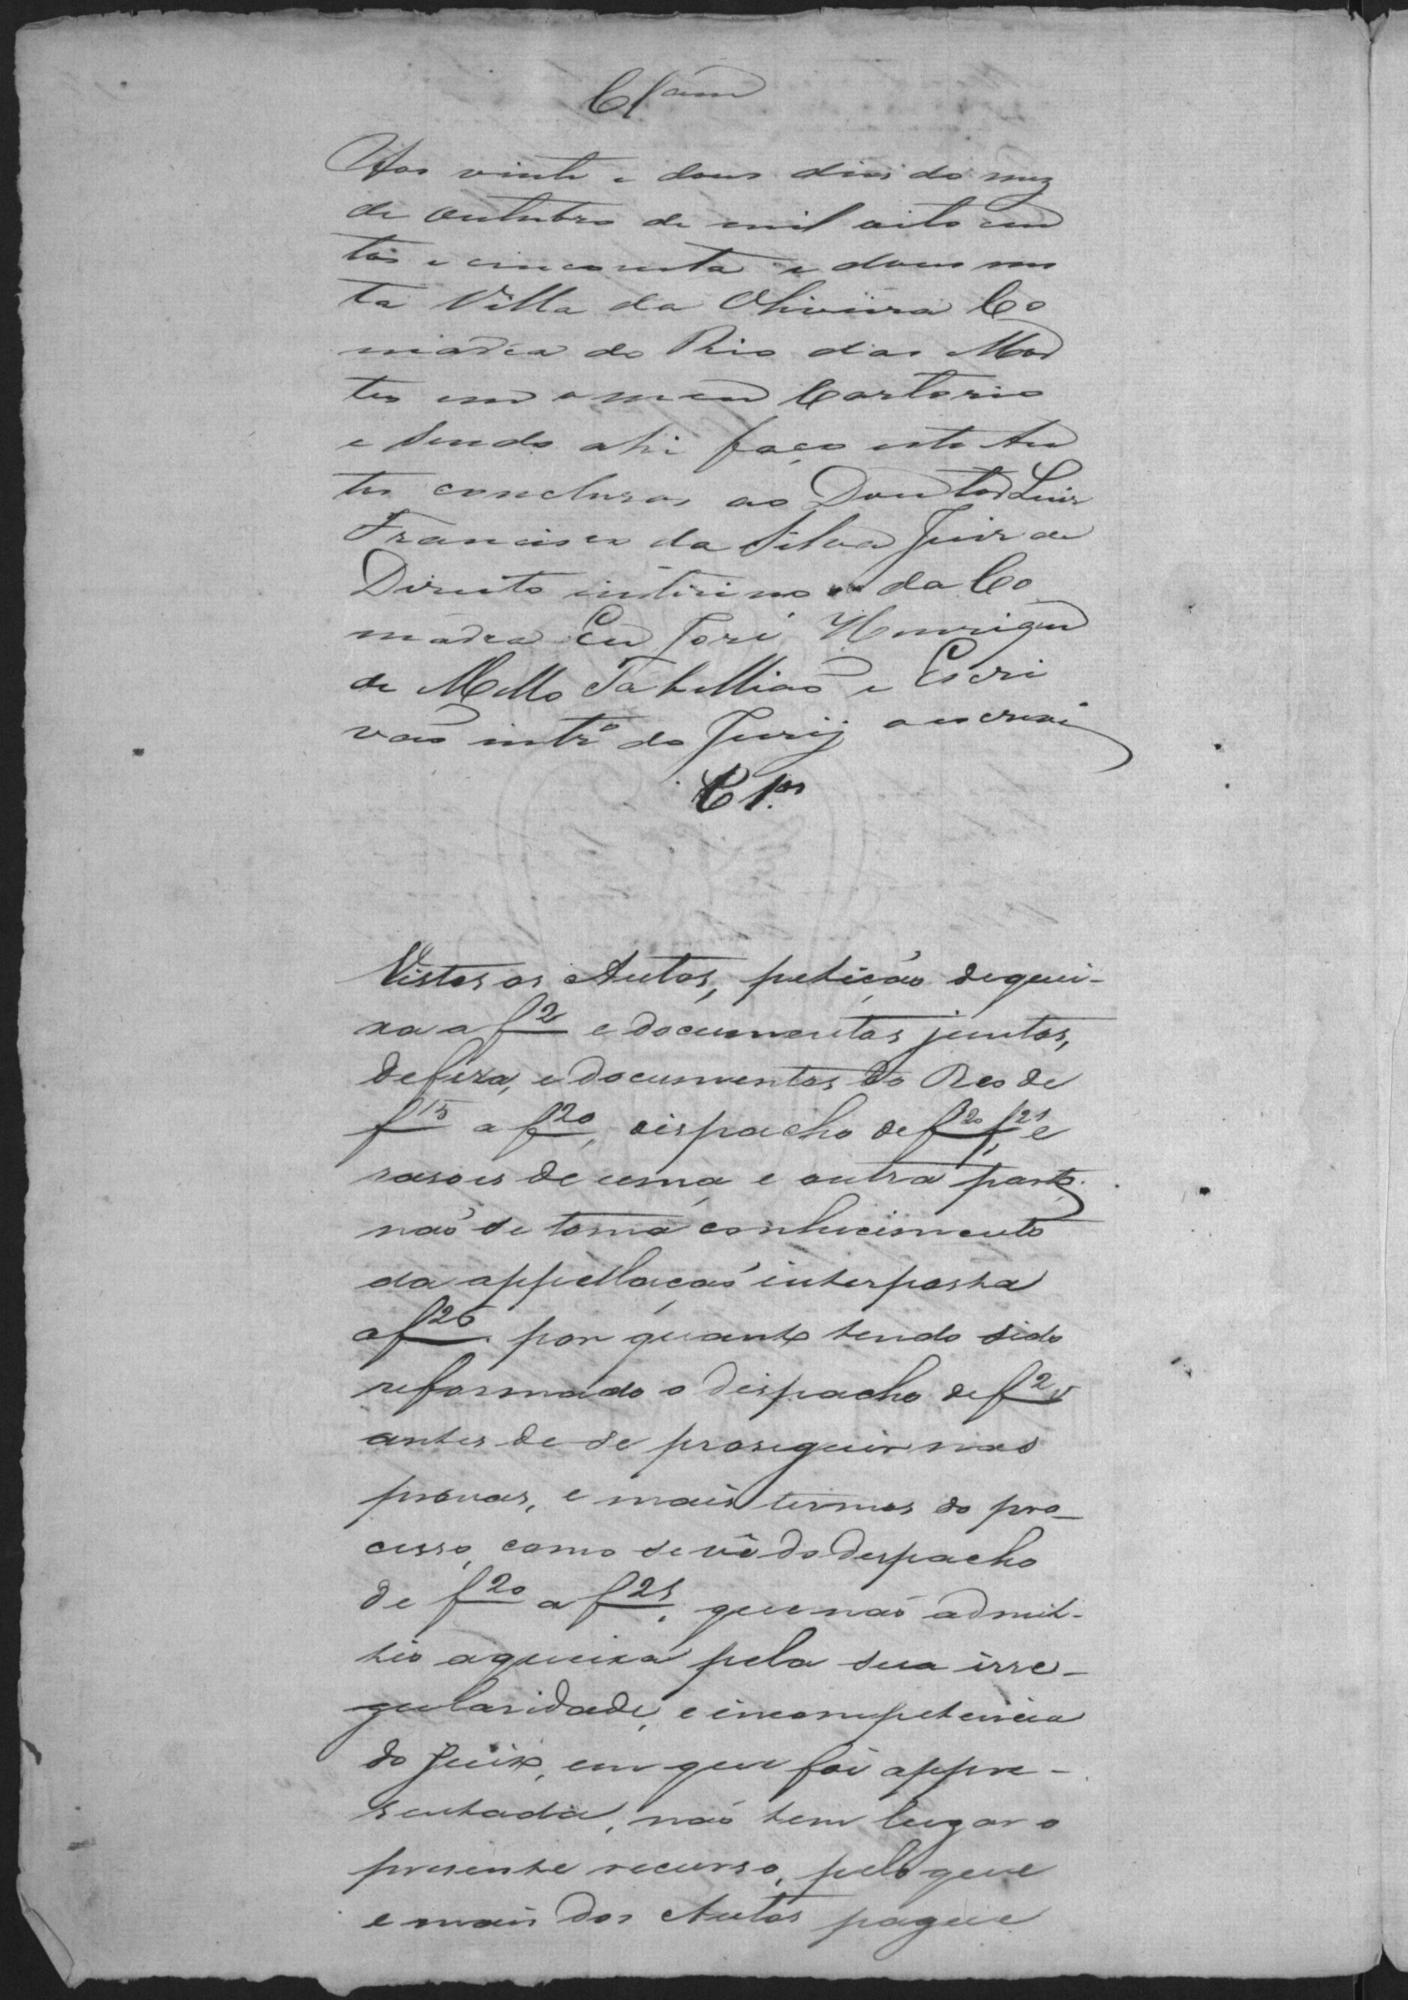 Cl.am
Aos vinte e dous dias do mez
de Outubro de mil oito cen
tos e cincoenta e dous nes
ta Villa da Oliveira Co
marca do Rio das Mor
tes em o meu Cartorio
e sendo ahi faço estes Au
tos conclusos ao Doutor Luis
Francisco da Silva Juis de
Direito interino da Co
marca Eu José Henriques
de Mello Tabellião e Escri
vão intr.o do Jury o escrevi
Cl.os
Vistos os Autos, petição de quei-
xa a f 2 e documentos juntos,
defeza, e documentos do Reo de
f 15 a f 20, dispacho de f 20, f 21 e
rasoes de uma e outra parte,
não se toma conhecimento
da appellação interposta
a f 26 por quanto tendo sido
reformado o dispacho de f 2v
antes de se proseguir nas
provas, e mais termos do pro-
cesso, como se vê do despacho
de f 20 a f 21, que não admit-
tio a queixa pela sua irre-
gularidade, e incompetencia
do Juix, em que foi appre-
sentada, não tem lugar o
presente recurso, pelo que
e mais dos Autos pague